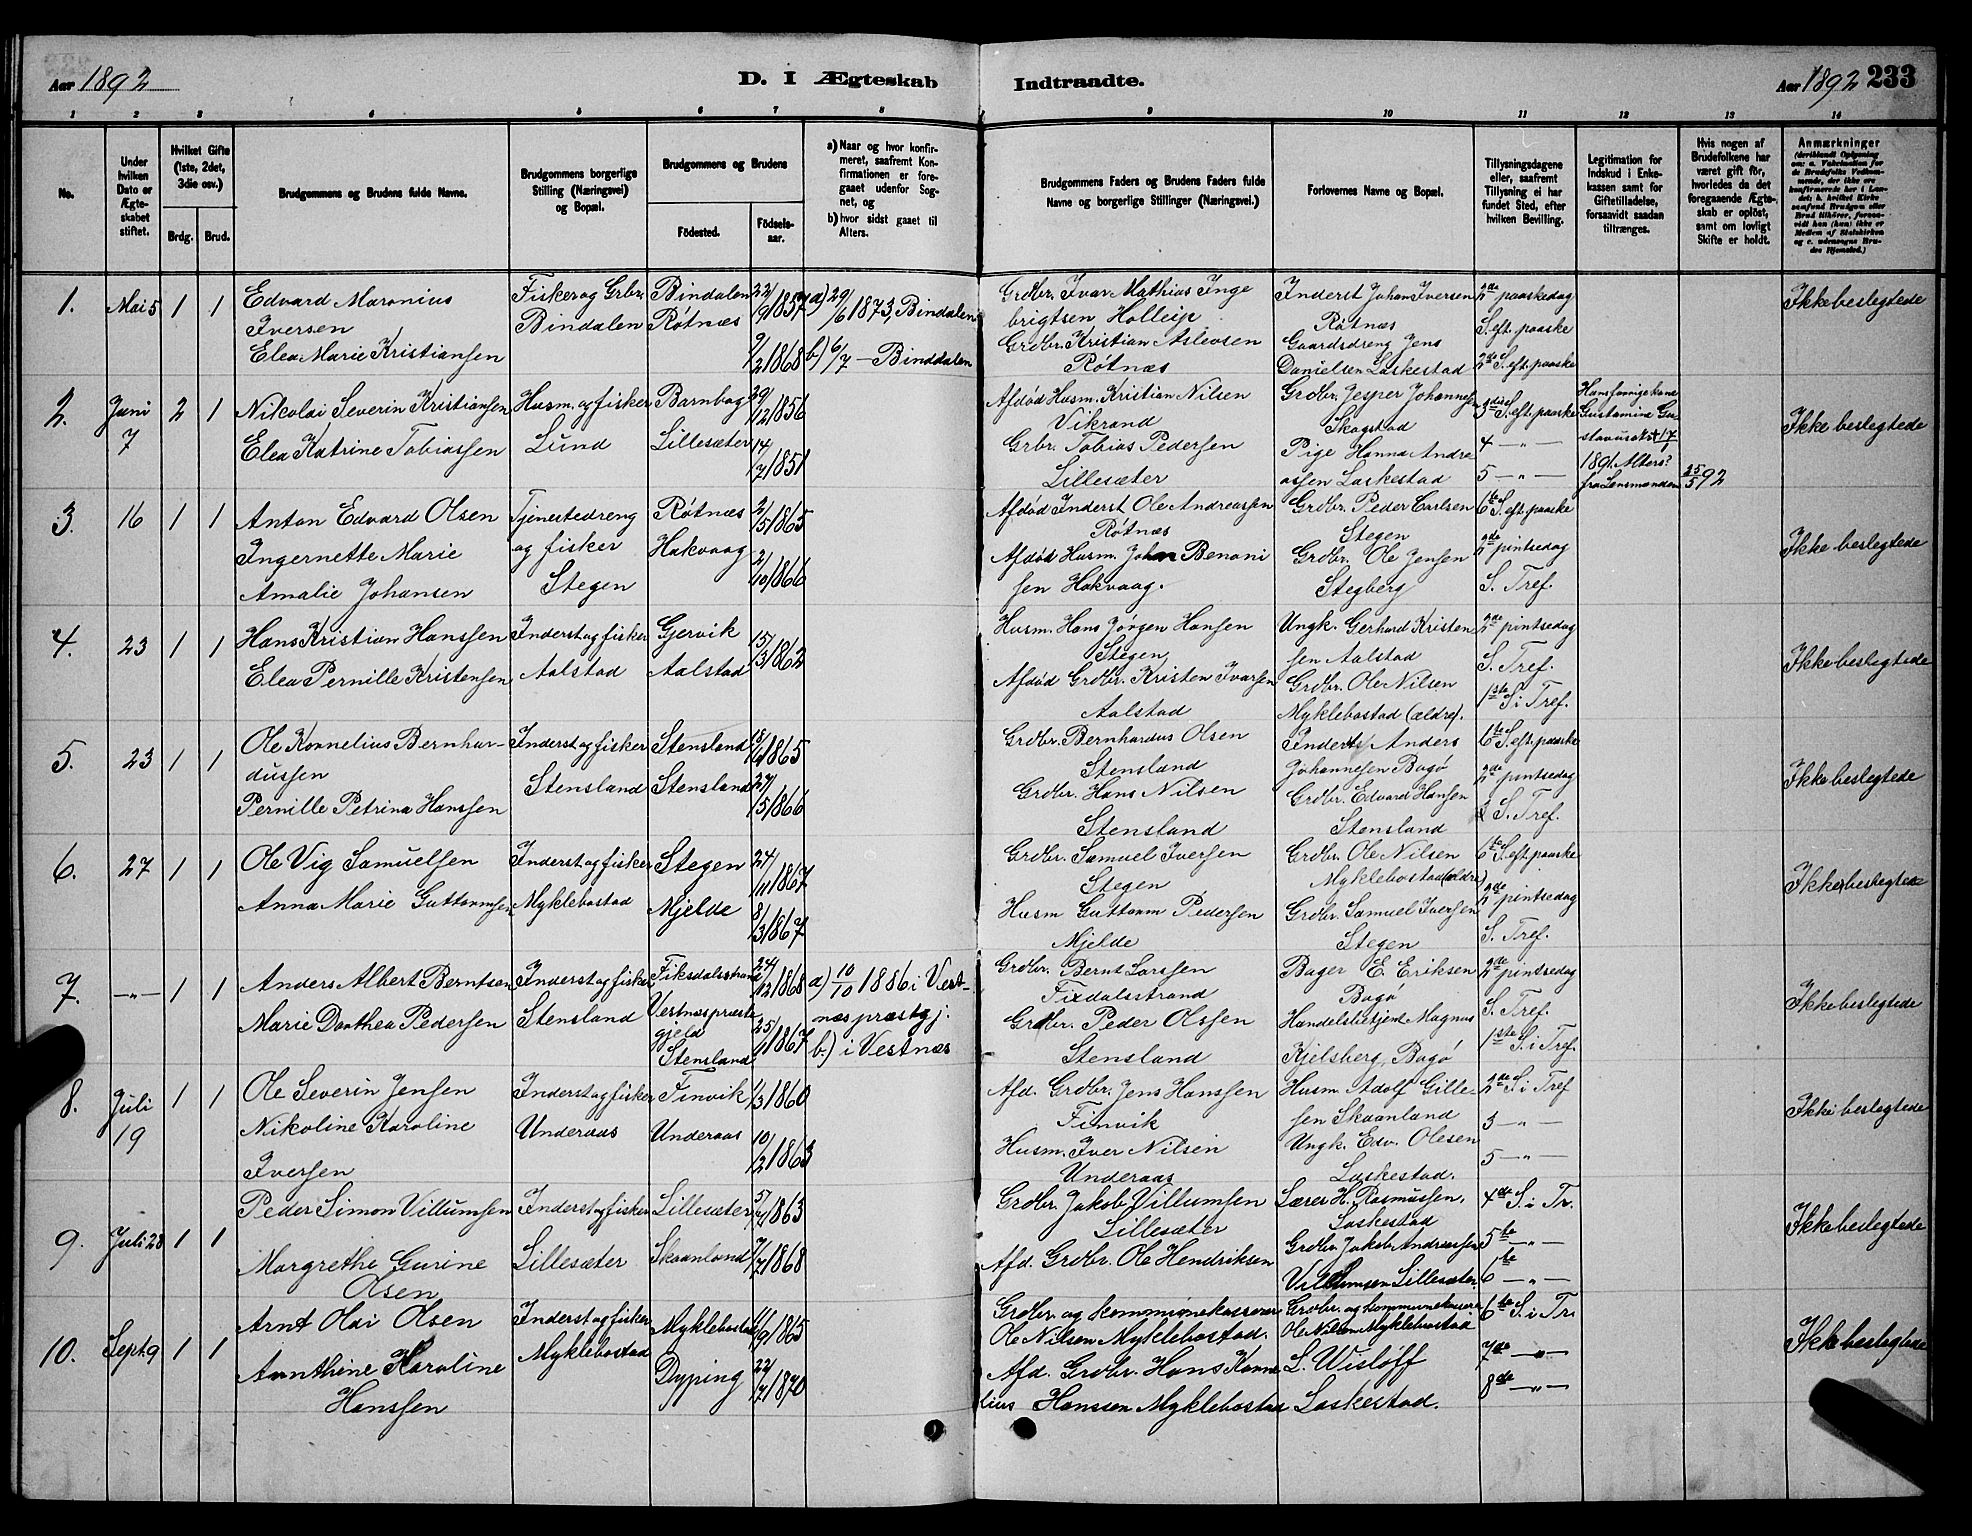 Aar 1892
D. I Ægteskab
Indtraadte.
Aar 1892 233
1 2 3 4 5 6 7 8 9 10 11 12 13 14
No.
Under
hvilken
Dato er
Ægte-
skabet
stiftet.
Hvilket Gifte
(1ste, 2det,
3die osv.)
Brdg. Brud.
Brudgommens og Brudens fulde Navne.
Brudgommens borgerlige
Stilling (Næringsvei)
og Bopæl.
Brudgommens og Brudens
Födested.
Födsels-
aar.
a) Naar og hvor konfir-
meret, saafremt Kon-
firmationen er fore-
gaaet udenfor Sog-
net, og
b) hvor sidst gaaet til
Alters.
Brudgommens Faders og Brudens Faders fulde
Navne og borgerlige Stillinger (Næringsvei.)
Forlovernes Navne og Bopæl.
Tillysningsdagene
eller, saafremt
Tillysning ei har
fundet Sted, efter
hvilken Bevilling.
Legitimation for
Indskud i Enke-
kassen samt for
Giftetilladelse,
forsaavidt saadan
tiltrænges.
Hvis nogen af
Brudefolkene har
været gift för,
hvorledes da det
foregaaende Ægte-
skab er oplöst,
samt om lovligt
Skifte er holdt.
Anmærkninger
(deriblandt Oplysning
om: a. Vakcination for
de Brudefolks Vedkom-
mende, der ikke ere
konfirmerede her i Lan-
det; b. hvilket Kirke-
samfund Brudgom eller
Brud tilhörer, forsaa-
vidt han (hun) ikke er
Medlem af Statskirken
og c. udensogns Bru-
des Hjemsted.)
1. Mai 5 1 1
Edvard Maronius
Iversen
Elea Marie Kristiansen
Fisker og Grbr.
Bindalen
Bindalen
Røtnæs
22/9 1857
9/2 1868
a) 29/6 1873, Bindalen
b) 6/7 — Binddalen
Grdbr. Ivar Mathias Inge
brigtsen Holleip
Grdbr. Kristian Aslevsen
Røtnæs
Inderst Johan Iversen
Røtnæs
Gaardsdreng Jens
Danielsen Laskestad
2de paaskedag
S. eft. paaske
2de S. eft. paaske
Ikke beslegtede
2. Juni
7
2 1
Nikolai Severin Kristiansen
Elea Katrine Tobiassen
Husm. og fisker
Lund
Barnbog
Lillesæter
29/12 1856
14/7 1851
Afdød Husm. Kristian Nilsen
Vikrand
Grbr. Tobias Pedersen
Lillesæter
Grdbr. Jesper Johannesen
Skogstad
Pige Hanna Andre
assen Laskestad
3die S. eft. paaske
4 — " —
5 — " —
Hans forrige kone
1891
fra Lensmanden 25/5 92
Ikke beslegtede
3. 16 1 1
Anton Edvard Olsen
Ingernette Marie
Amalie Johansen
Tjenestedreng
og fisker
Stegen
Røtnæs
Hakvaag
2/5 1865
2/10 1866
Afdød Inderst Ole Andreassen
Røtnæs
Afdød Husm. Johan Benoni
sen Hakvaag.
Grdbr. Peder Carlsen
Stegen
Grdbr. Ole Jensen
Stegberg
6te S. eft. paaske
2de pintsedag
S. Tref.
Ikke beslegtede
4. 23 1 1
Hans Kristian Hanssen
Elea Pernille Kristensen
Inderst og fisker
Aalstad
Gjervik
Aalstad
15/3 1862
Husm. Hans Jørgen Hansen
Stegen
Afdød Grdbr. Kristen Ivarsen
Aalstad
Ungk. Gerhard Kristen
sen Aalstad
Grdbr. Ole Nilsen
Myklebostad (ældre).
2de pintsedag
S. Tref.
1ste S. i Tref.
Ikke beslegtede
5. 23 1 1
Ole Kornelius Bernhar-
dussen
Pernille Petrina Hanssen
Inderst og fisker
Stensland
Stensland
Stensland
18/6 1865
27/5 1866
Grdbr. Bernhardus Olsen
Stensland
Grdbr. Hans Nilsen
Stensland
Inderst Anders
Johannesen Bogø
Grdbr. Edvard Hansen
Stensland
6te S. eft. paaske
2de pintsedag
S. Tref.
Ikke beslegtede
6. 27 1 1
Ole Vig Samuelsen
Anna Marie Guttormsen
Inderst og fisker
Myklebostad
Stegen
Mjelde
24/11 1867
8/3 1867
Grdbr. Samuel Iversen
Stegen
Husm Guttorm Pedersen
Mjelde
Grdbr. Ole Nilsen
Myklebostad (ældre)
Grdbr. Samuel Iversen
Stegen
6te S. eft. paaske
2de pintsedag
S. Tref.
Ikke beslegtede
7. —"— 1 1
Anders Albert Berntsen
Marie Dorthea Pedersen
Inderst og fisker
Stensland
Fiksdalsstrand
Vestnes præste
gjeld
Stensland
24/12 1868
25/1 1867
a) 10/10 1886 i Vest-
næs præstgj.
b.) i Vestnæs
Grdbr. Bernt Larssen
Fixdalsstrand
Grdbr. Peder Olssen
Stensland
Bager E. Eriksen
Bogø
Handelsbetjent Magnus
Kjelsberg, Bogø
2de pintsedag
S. Tref.
1ste S. i Tref.
Ikke beslegtede
8. Juli
19
1 1
Ole Severin Jensen
Nikoline Karoline
Iversen
Inderst og fisker
Underaas
Finvik
Underaas
1/3 1860
10/2 1863
Afd. Grdbr. Jens Hanssen
Finvik
Husm. Iver Nilsen
Underaas
Husm. Adolf Gille-
sen Skaanland
Ungk. Edv. Olesen
Laskestad.
2de S. i Tref
3 — " —
5 — " —
Ikke beslegtede
9. Juli 28 1 1
Peder Simon Villumsen
Margrethe Gurine
Olsen
Inderst og fisker
Lillesæter
Lillesæter
Skaanland
5/7 1863
7/7 1868
Grdbr. Jakob Villumsen
Lillesæter
Afd. Grdbr. Ole Hendriksen
Lærer H. Rasmussen,
Laskestad
Grdbr. Jakob Andreassen
Villumsen Lillesæter
4de S. i Tr.
5te — " —
6te — " —
Ikke beslegtede
10. Sept. 9 1 1
Arnt Odi Olsen
Arnthine Karoline
Hanssen
Inderst og fisker
Myklebostad
Myklebostad
Dyping
16/9 1865
22/7 1870
Grdbr og kommunekasserer
Ole Nilsen Myklebostad.
Afd. Grdbr. Hans Korne
lius Hanssen Myklebostad
Grdbr. og kommunekasserer
Ole Nilsen Myklebostad
L. Wisløff
Laskestad.
6te S. i Tr.
7de — " —
8de — " —
Ikke beslegtede